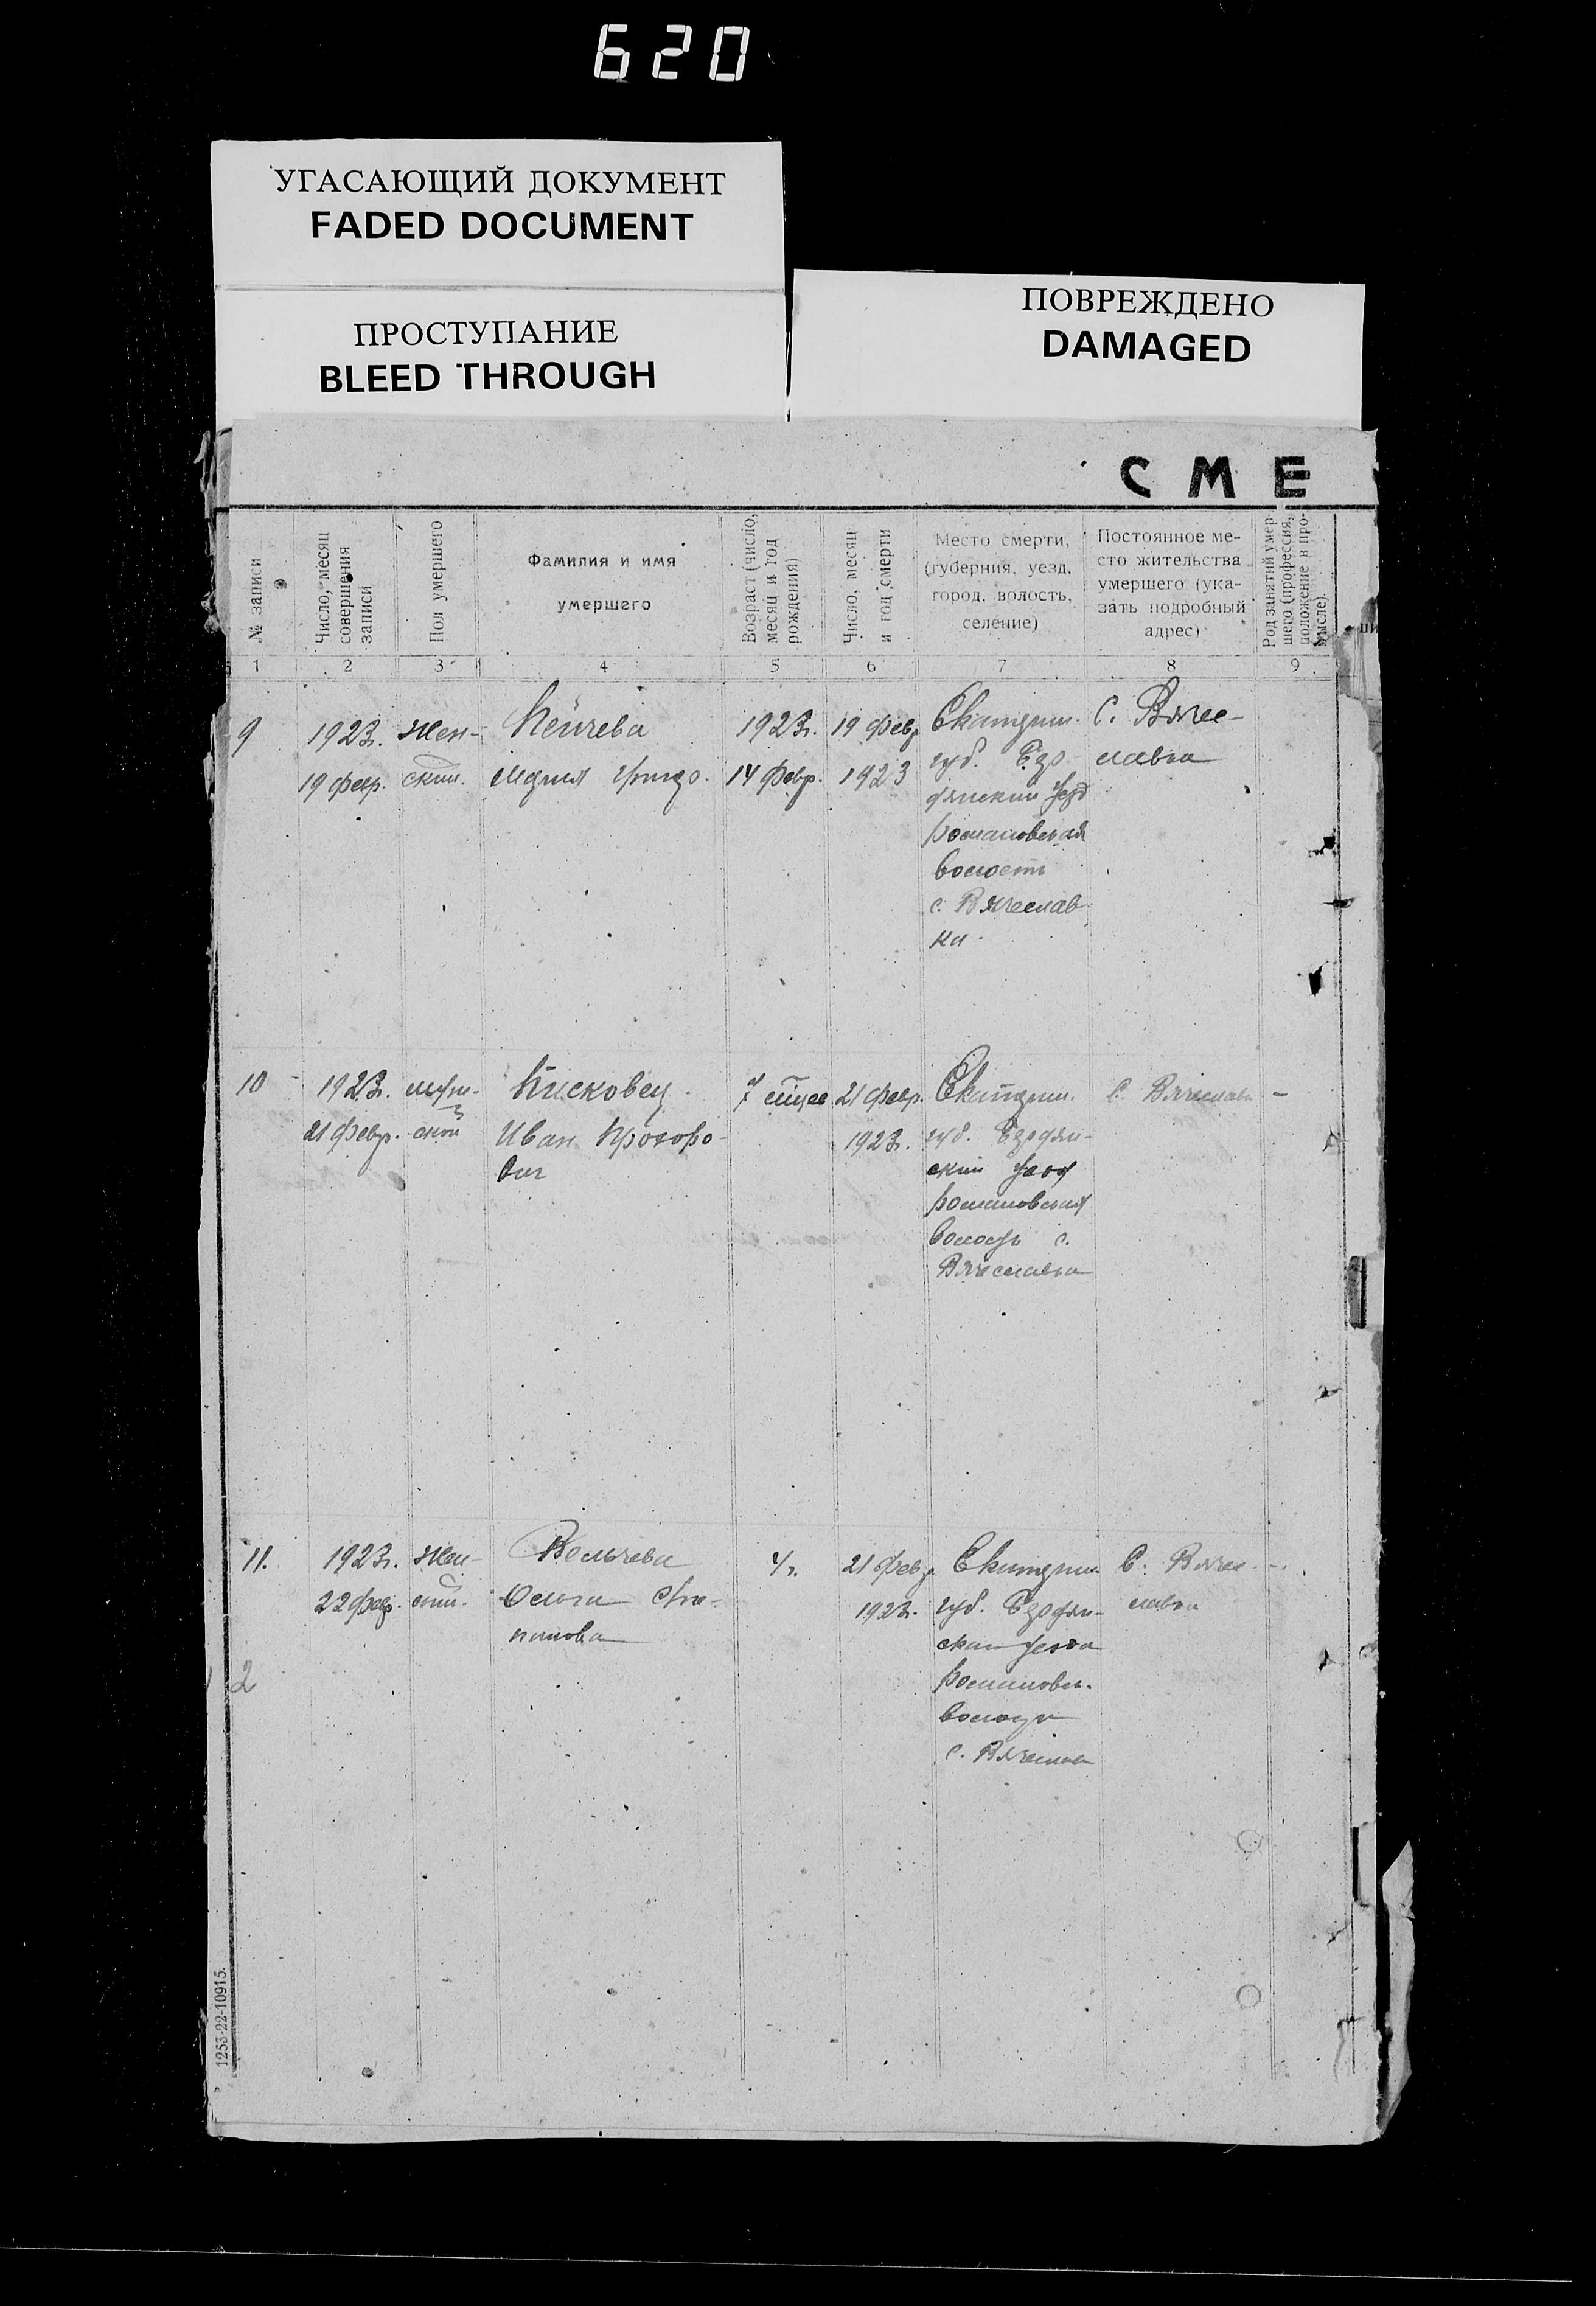 620
УГАСАЮЩИЙ ДОКУМЕНТ
FADED DOCUMENT
ПРОСТУПАНИЕ
BLEED THROUGH
ПОВРЕЖДЕНО
DAMAGED
СМЕ
№ записи
Число, месяц
совершения
записи
Пол умершего
Фамилия и имя
умершего
Возраст (число,
месяц и год
рождения)
Число, месяц
и год смерти
Место смерти,
(губерния, уезд,
город, волость,
селение)
Постоянное ме-
сто жительства
умершего (ука-
зать подробный
адрес)
Род занятий умер-
шего (профессия,
положение в про-
мысле).
1 2 3 4 5 6 7 8 9
9
1923г.
19 февр.
Жен-
ский.
Пейчева
Мария
1923г.
14 февр.
19 фев.
1923
Екатерин.
губ.
уезд
романовская
волость
с. Вячеслав
ка.
С. Вячес-
лавка
10
1923г.
21 февр.
муж-
ской
Писковец
Иван Прохоро-
вич
7
21 февр.
1923г.
Екатерин.
губ.
ский уезд
романовская
волость с.
Вячеславка
С. Вячеславка
-
11.
1923г.
22 февр.
Жен-
ский.
Вольчева
Ольга Сте-
панова
4г.
21 февр
1923г.
Екатерин.
губ.
уезда
романовск.
волости
с. Вячеславка
С. Вячес-
лавка
-
2
1253-22-10915.